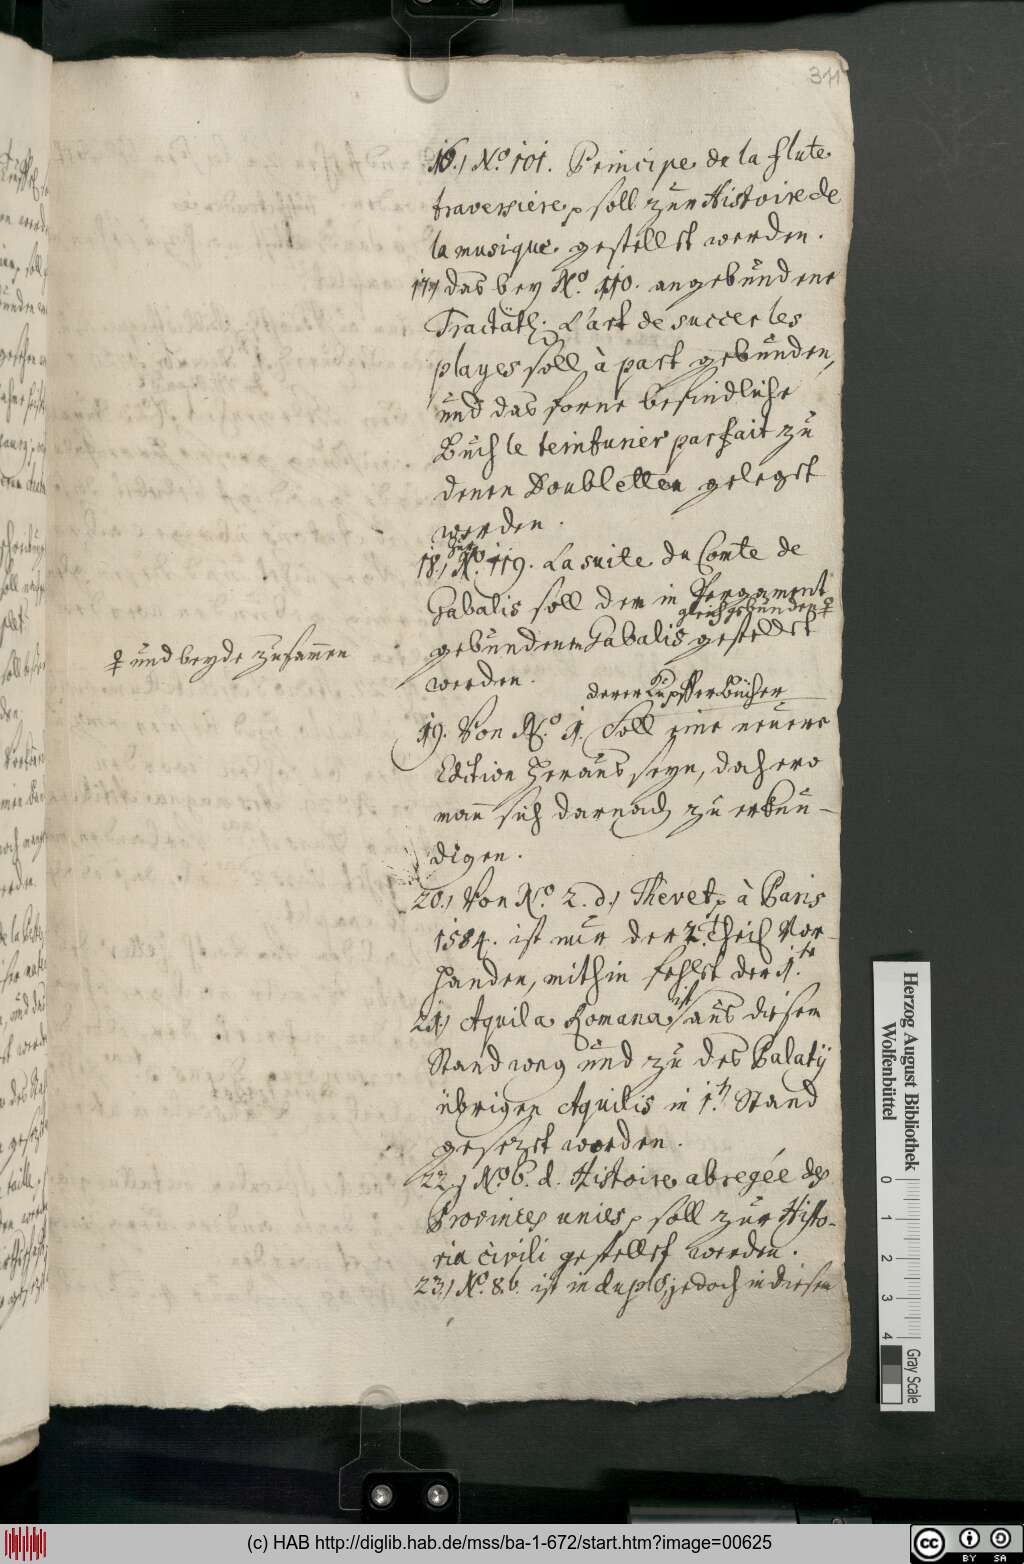 311
16.) No. 101. Principe de la flute
traversiere, soll zur Histoire de
la musique gestellt werden.
17) das bey No. 110. angebundene
Tractätl. L'art de succer les
playes soll à part gebunden,
und das forne befindliche
Buch le teinturier parfait zu
denen Doubletten gelegt
werden.
18.) Zu No. 119. La suite du Comte de
Gabalis soll dem in Pergament
gleich gebunden ♀
gebundenem Gabalis gestellt
♀ und beyde zusammen
werden.
derer Kupfferbücher
19. Von No. 1. soll eine neuere
Edition heraus seyn, dahero
man sich darnach zu erkun-
digen.
20.) Von No. 2. d.) Thevet, à Paris
1584. ist nur der 2. Theil vor-
handen, mithin fehlt der 1.te
21.) Aquila Romana ist aus diesem
Stand weg und zu des Palatij
übrigen Aquilis in 1. Stand
gesezt worden.
22.) No. 6. d. Histoire abregée des
Provinces unies, soll zur Histo-
ria civili gestellt werden.
23.) No. 8. b. ist in duplo, jedoch in diesem
Herzog August Bibliothek
Wolfenbüttel
0 1 2 3 4
Gray Scale
(c) HAB http://diglib.hab.de/mss/ba-1-672/start.htm?image=00625
cc BY SA